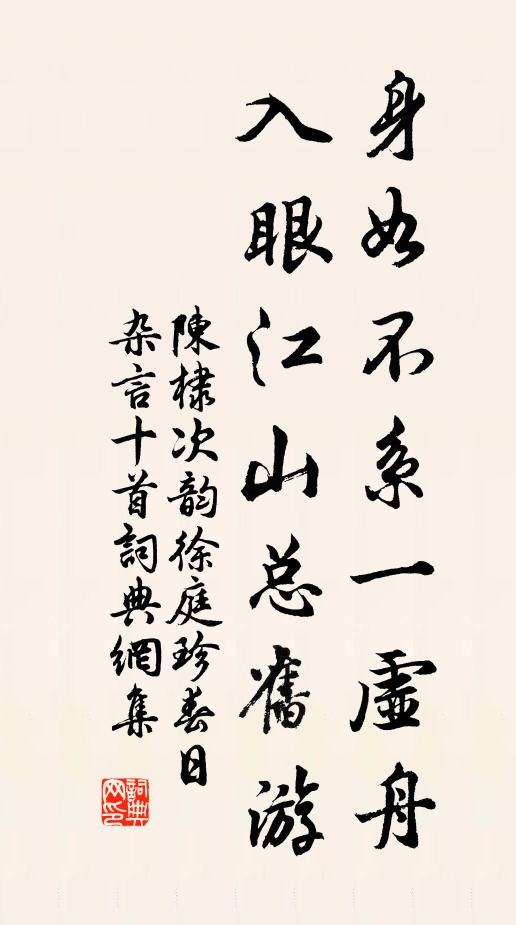 身如不系一虛舟
入眼江山总舊游
陳棣次韵徐庭珍春日
杂言十首詞典網集
詞典网印